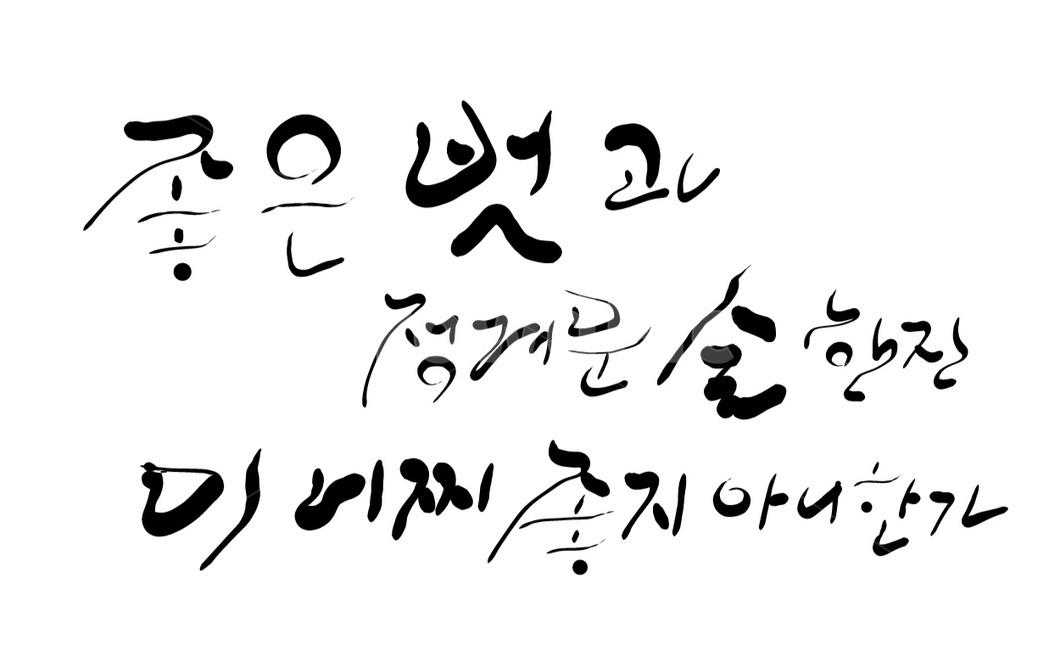 좋은 벗과
정겨운 술 한잔
이 어찌 좋지 아니한가